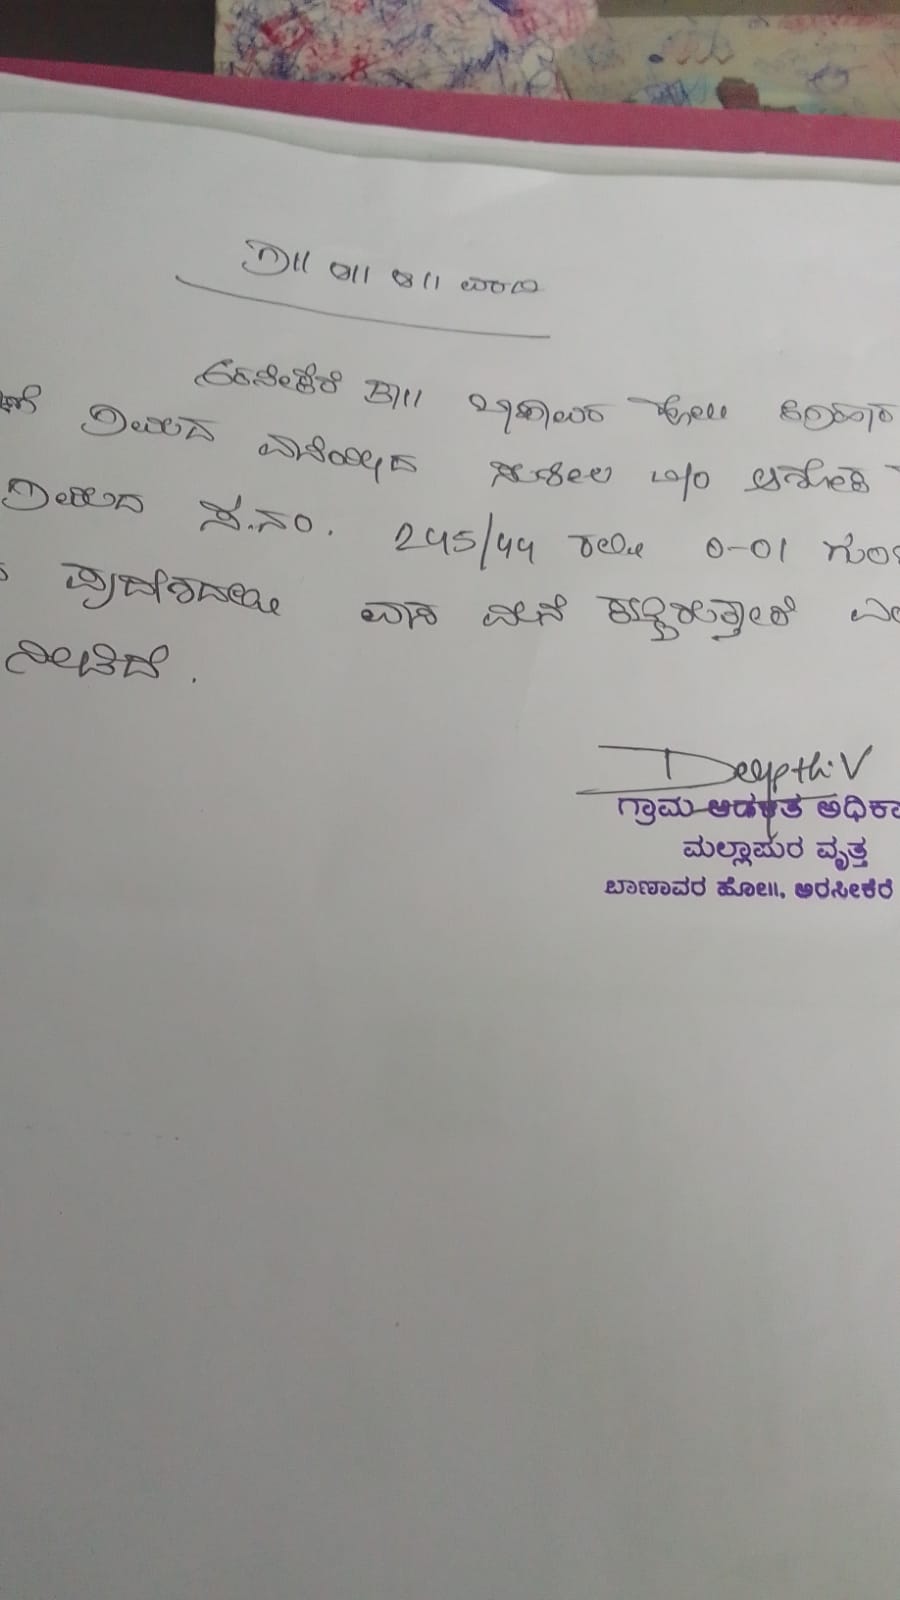 ಗ್ರಾ॥ ಆ॥ ಅ॥ ವರದಿ
ಅರಸೀಕೆರೆ ತಾ॥ ಬಾಣಾವರ ಹೋಬಳಿ
ಗ್ರಾಮದ ವಾಸಿಯಾದ ಸುಶೀಲ W/O ಅಶೋಕ
ಗ್ರಾಮದ ಸ.ನಂ. 245/44 ರಲ್ಲಿ 0-01
ಪ್ರದೇಶದಲ್ಲಿ ವಾಸ ಮನೆ ಕಟ್ಟಿರುತ್ತಾರೆ
ನೀಡಿದೆ.
Deepthi V
ಗ್ರಾಮ ಆಡಳಿತ
ಮಲ್ಲಾಪುರ ವೃತ್ತ
ಬಾಣಾವರ ಹೋ॥, ಅರಸೀಕೆರೆ